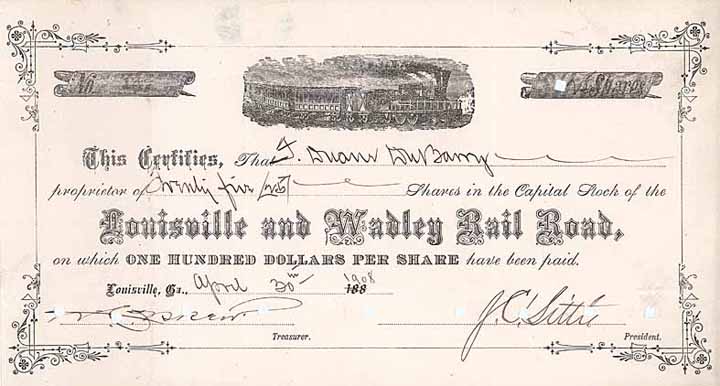 No
Shares
This Certifies, That F. Duane DuBarry
proprietor of Twenty five (25) Shares in the Capital Stock of the
Louisville and Wadley Rail Road,
on which ONE HUNDRED DOLLARS PER SHARE have been paid.
Louisville, Ga., April 30th 1908 188
J.C. Little
Treasurer. President.